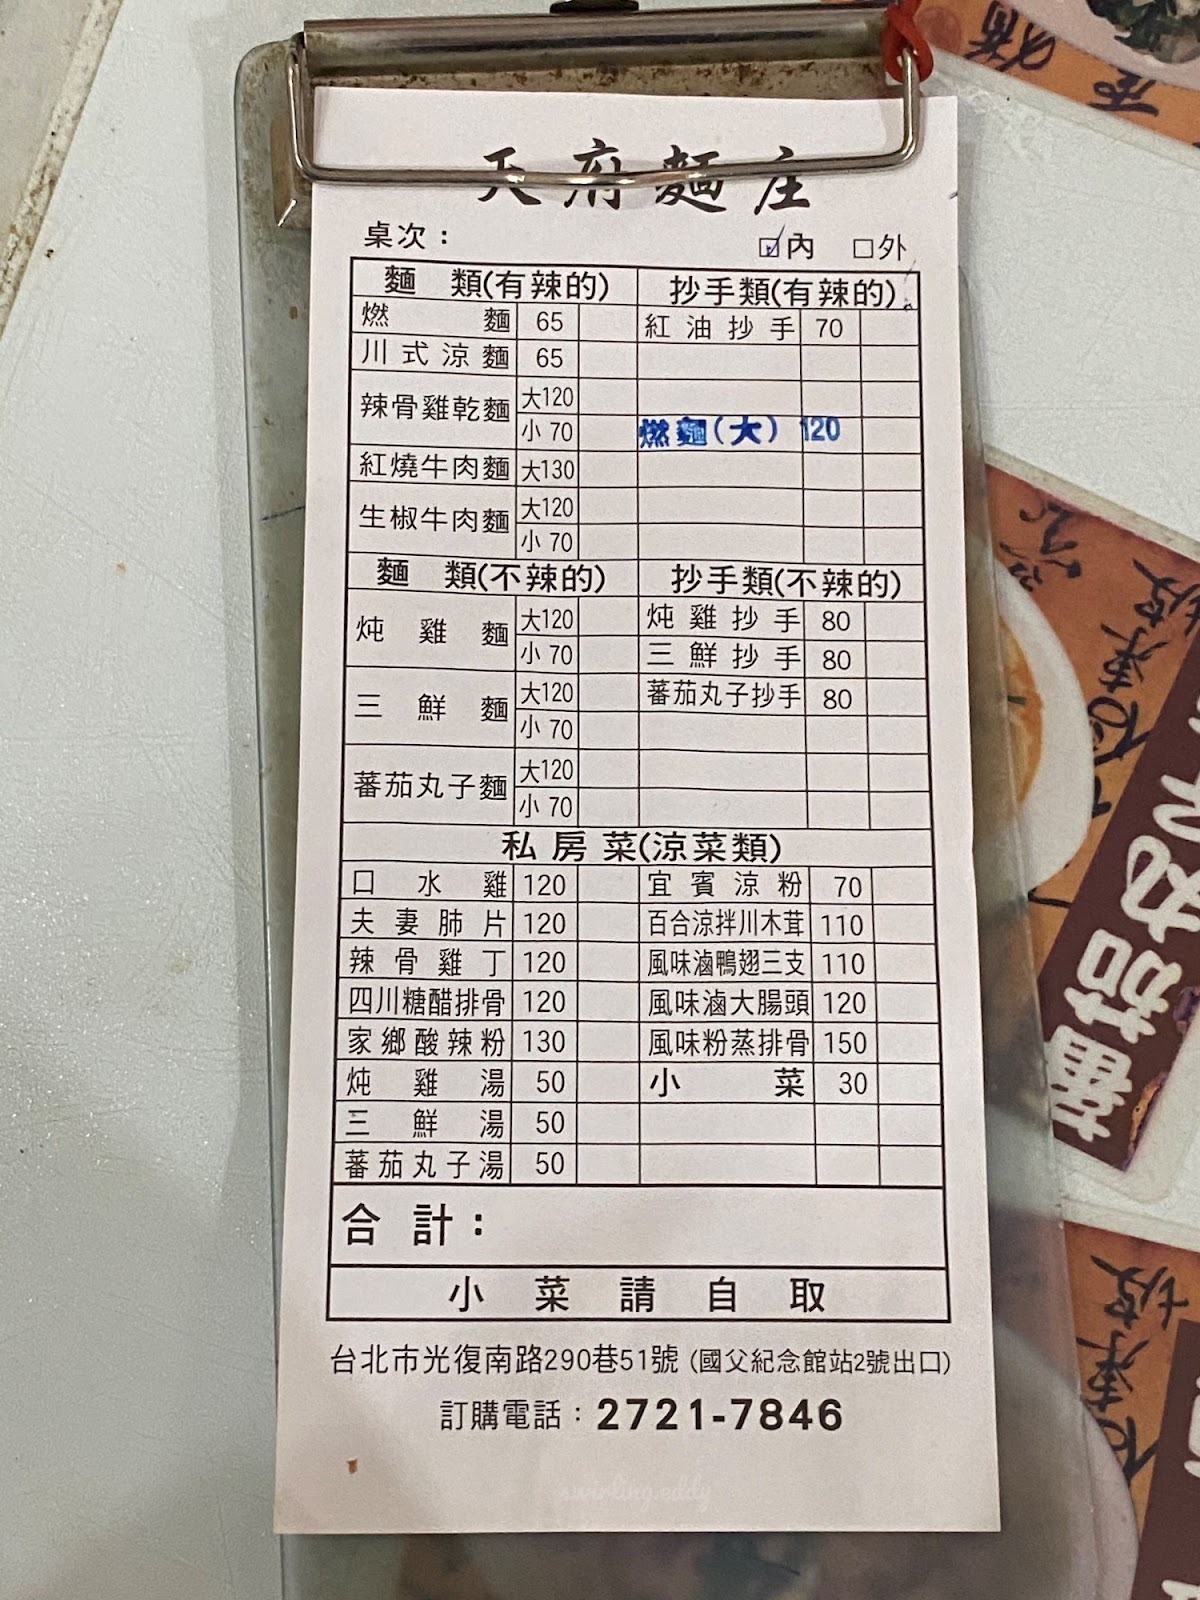 天府麵庄
桌次：
☑內 □外
麵 類(有辣的) 抄手類(有辣的)
燃麵 65 紅油抄手 70
川式涼麵 65
辣骨雞乾麵 大120
小 70 燃麵(大) 120
紅燒牛肉麵 大130
生椒牛肉麵 大120
小 70
麵 類(不辣的) 抄手類(不辣的)
炖雞麵 大120 炖雞抄手 80
小 70 三鮮抄手 80
三鮮麵 大120 蕃茄丸子抄手 80
小 70
蕃茄丸子麵 大120
小 70
私房菜(涼菜類)
口水雞 120 宜賓涼粉 70
夫妻肺片 120 百合涼拌川木茸 110
辣骨雞丁 120 風味滷鴨翅三支 110
四川糖醋排骨 120 風味滷大腸頭 120
家鄉酸辣粉 130 風味粉蒸排骨 150
炖雞湯 50 小菜 30
三鮮湯 50
蕃茄丸子湯 50
合計：
小菜請自取
台北市光復南路290巷51號 (國父紀念館站2號出口)
訂購電話：2721-7846
swirling.eddy
蕃茄丸子